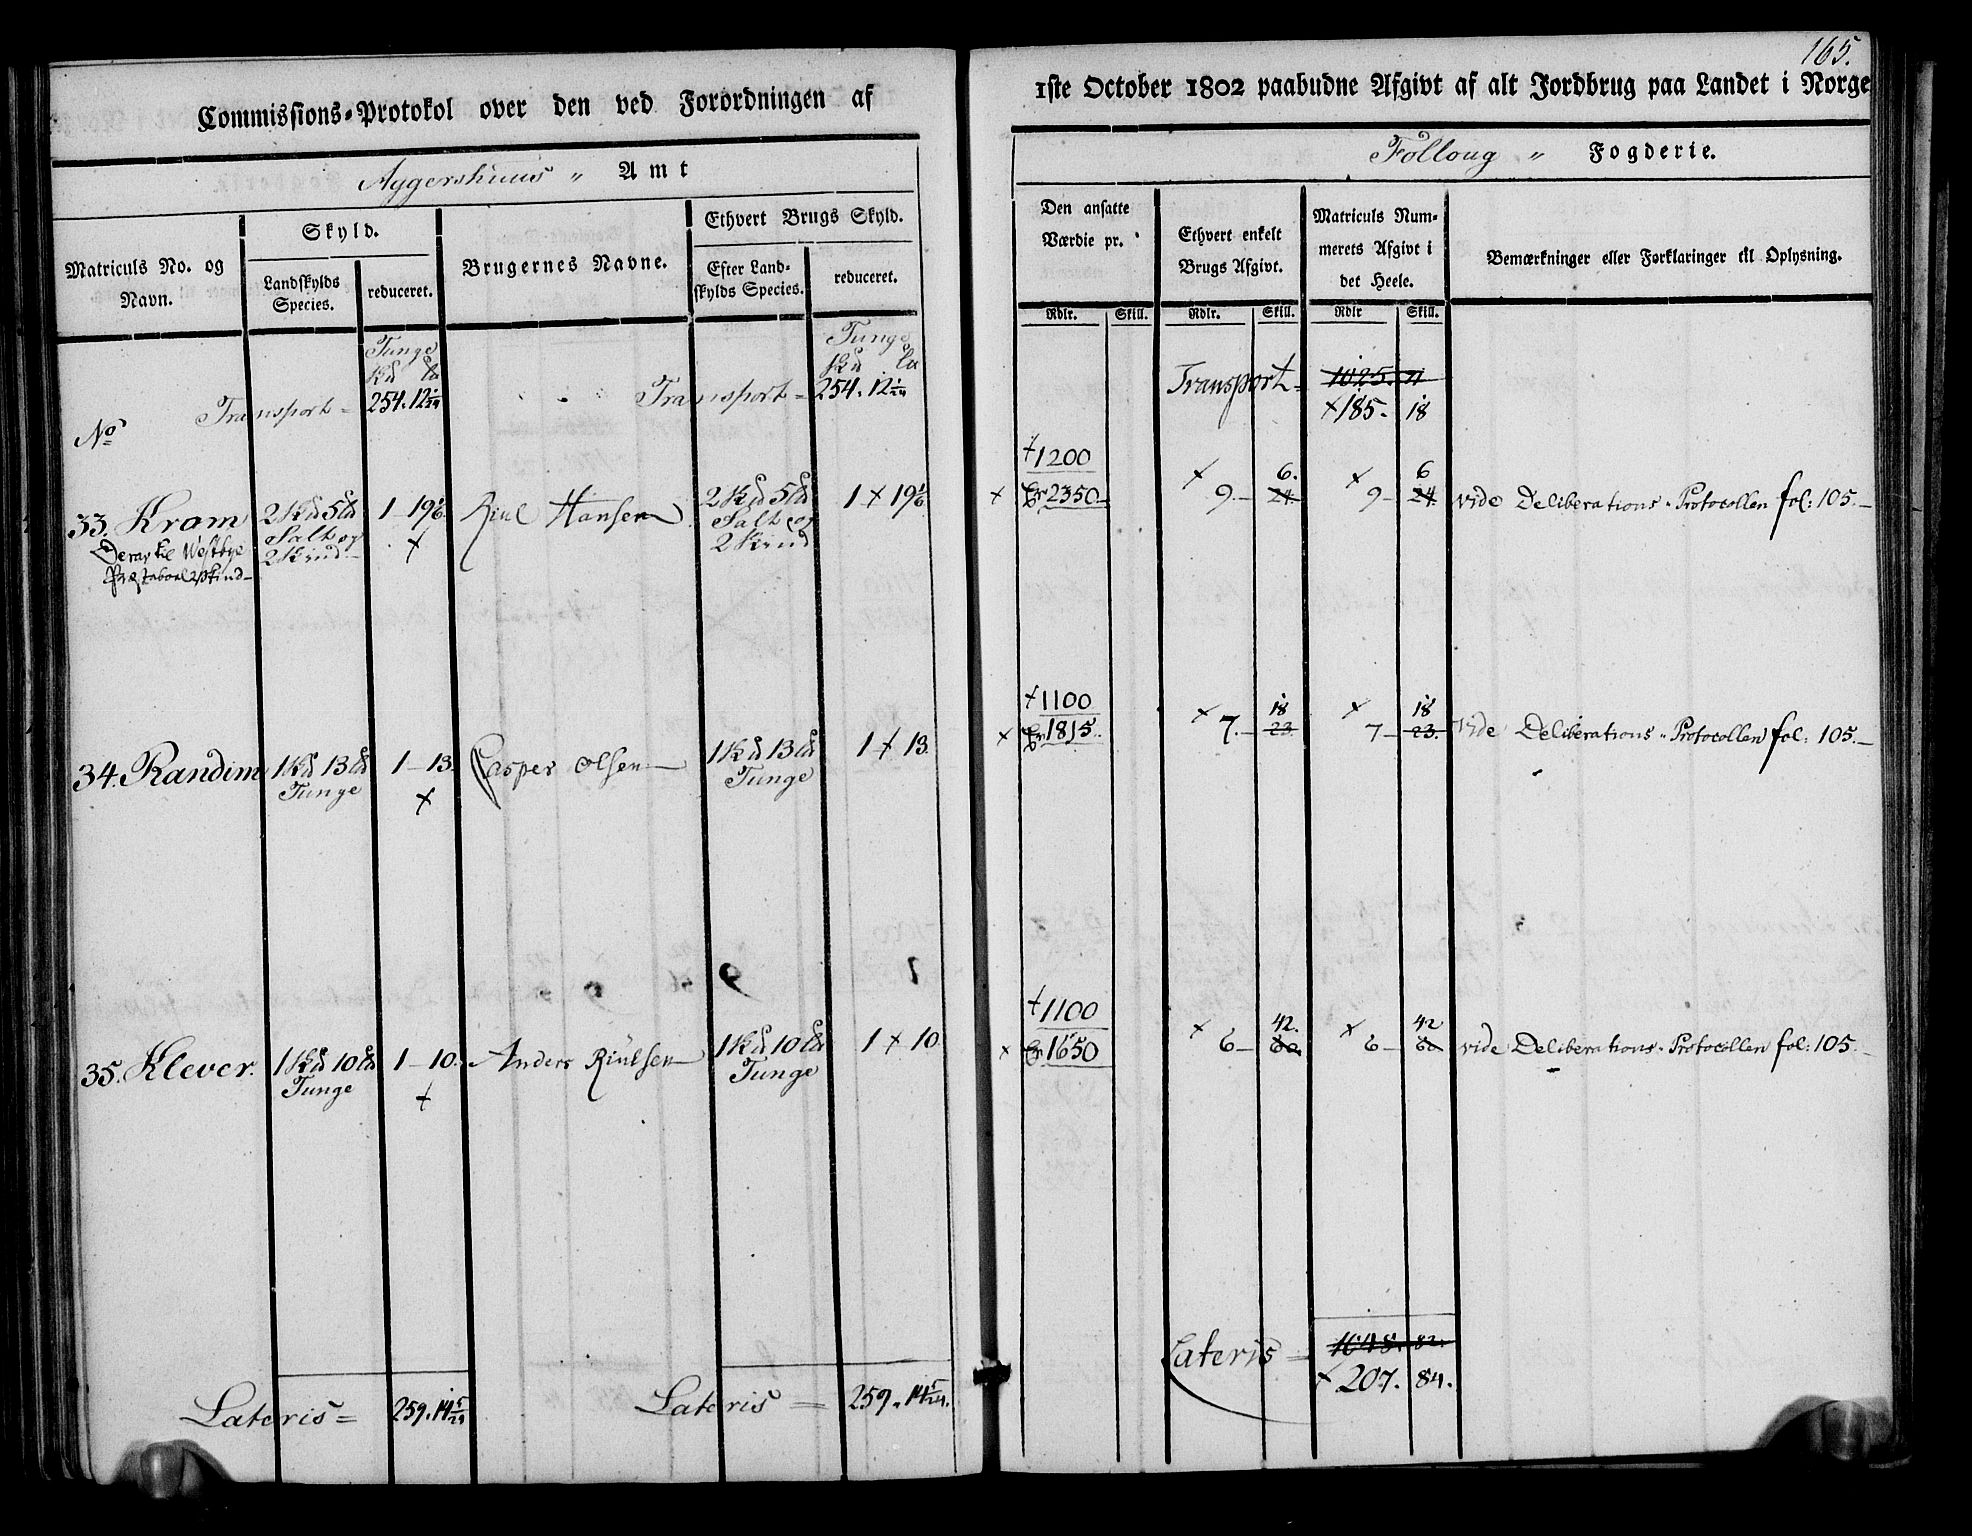 165.
Commissions-Protokol over den ved Forordningen af
1ste October 1802 paabudne Afgivt af alt Jordbrug paa Landet i Norge
Aggershuus " Amt
Folloug " Fogderie.
Matriculs No. og Navn.
Skyld.
Landskylds Species.
reduceret.
Brugernes Navne.
Ethvert Brugs Skyld.
Efter Land-skylds Species.
reduceret.
Den ansatte Værdie pr.
Ethvert enkelt Brugs Afgivt.
Matriculs Num-merets Afgivt i det Heele.
Bemærkninger eller Forklaringer til Oplysning.
Rdlr. Skill. Rdlr. Skill. Rdlr Skill.
Tunge Tunge
Transport = 254. 12 1/24 Transport = 254. 12 1/24 Transport = 1025. 11
× 185. 18
No
+ 1200 6. 6
33. Kram 2 Kd 5 Ld 1 - 19 1/6 Riul Hansen 2 Kd 5 Ld 1 × 19 1/6 × 2350 × 9 - 24 × 9 - 24 vide Deliberations-Protocollen fol: 105.
Salt og Salt og
2 Kind 2 Kind
+ 1100 18 18
34. Randim 1 Kd 13 Ld 1 - 13. Casper Olsen 1 Kd 13 Ld 1 × 13. × 1815. × 7. - 23. × 7 - 23. vide Deliberations-Protocollen fol: 105.
Tunge × Tunge
+ 1100 42. 42
35. Klever. 1 Kd 10 Ld 1 - 10. Anders Riulsen 1 Kd 10 Ld 1 × 10 × 1650 × 6 - × 6 - vide Deliberations-Protocollen fol: 105.
Tunge + Tunge
Lateris = 259. 14 5/24 Lateris = 259. 14 5/24. Lateris = 1048. 82.
× 207. 84.